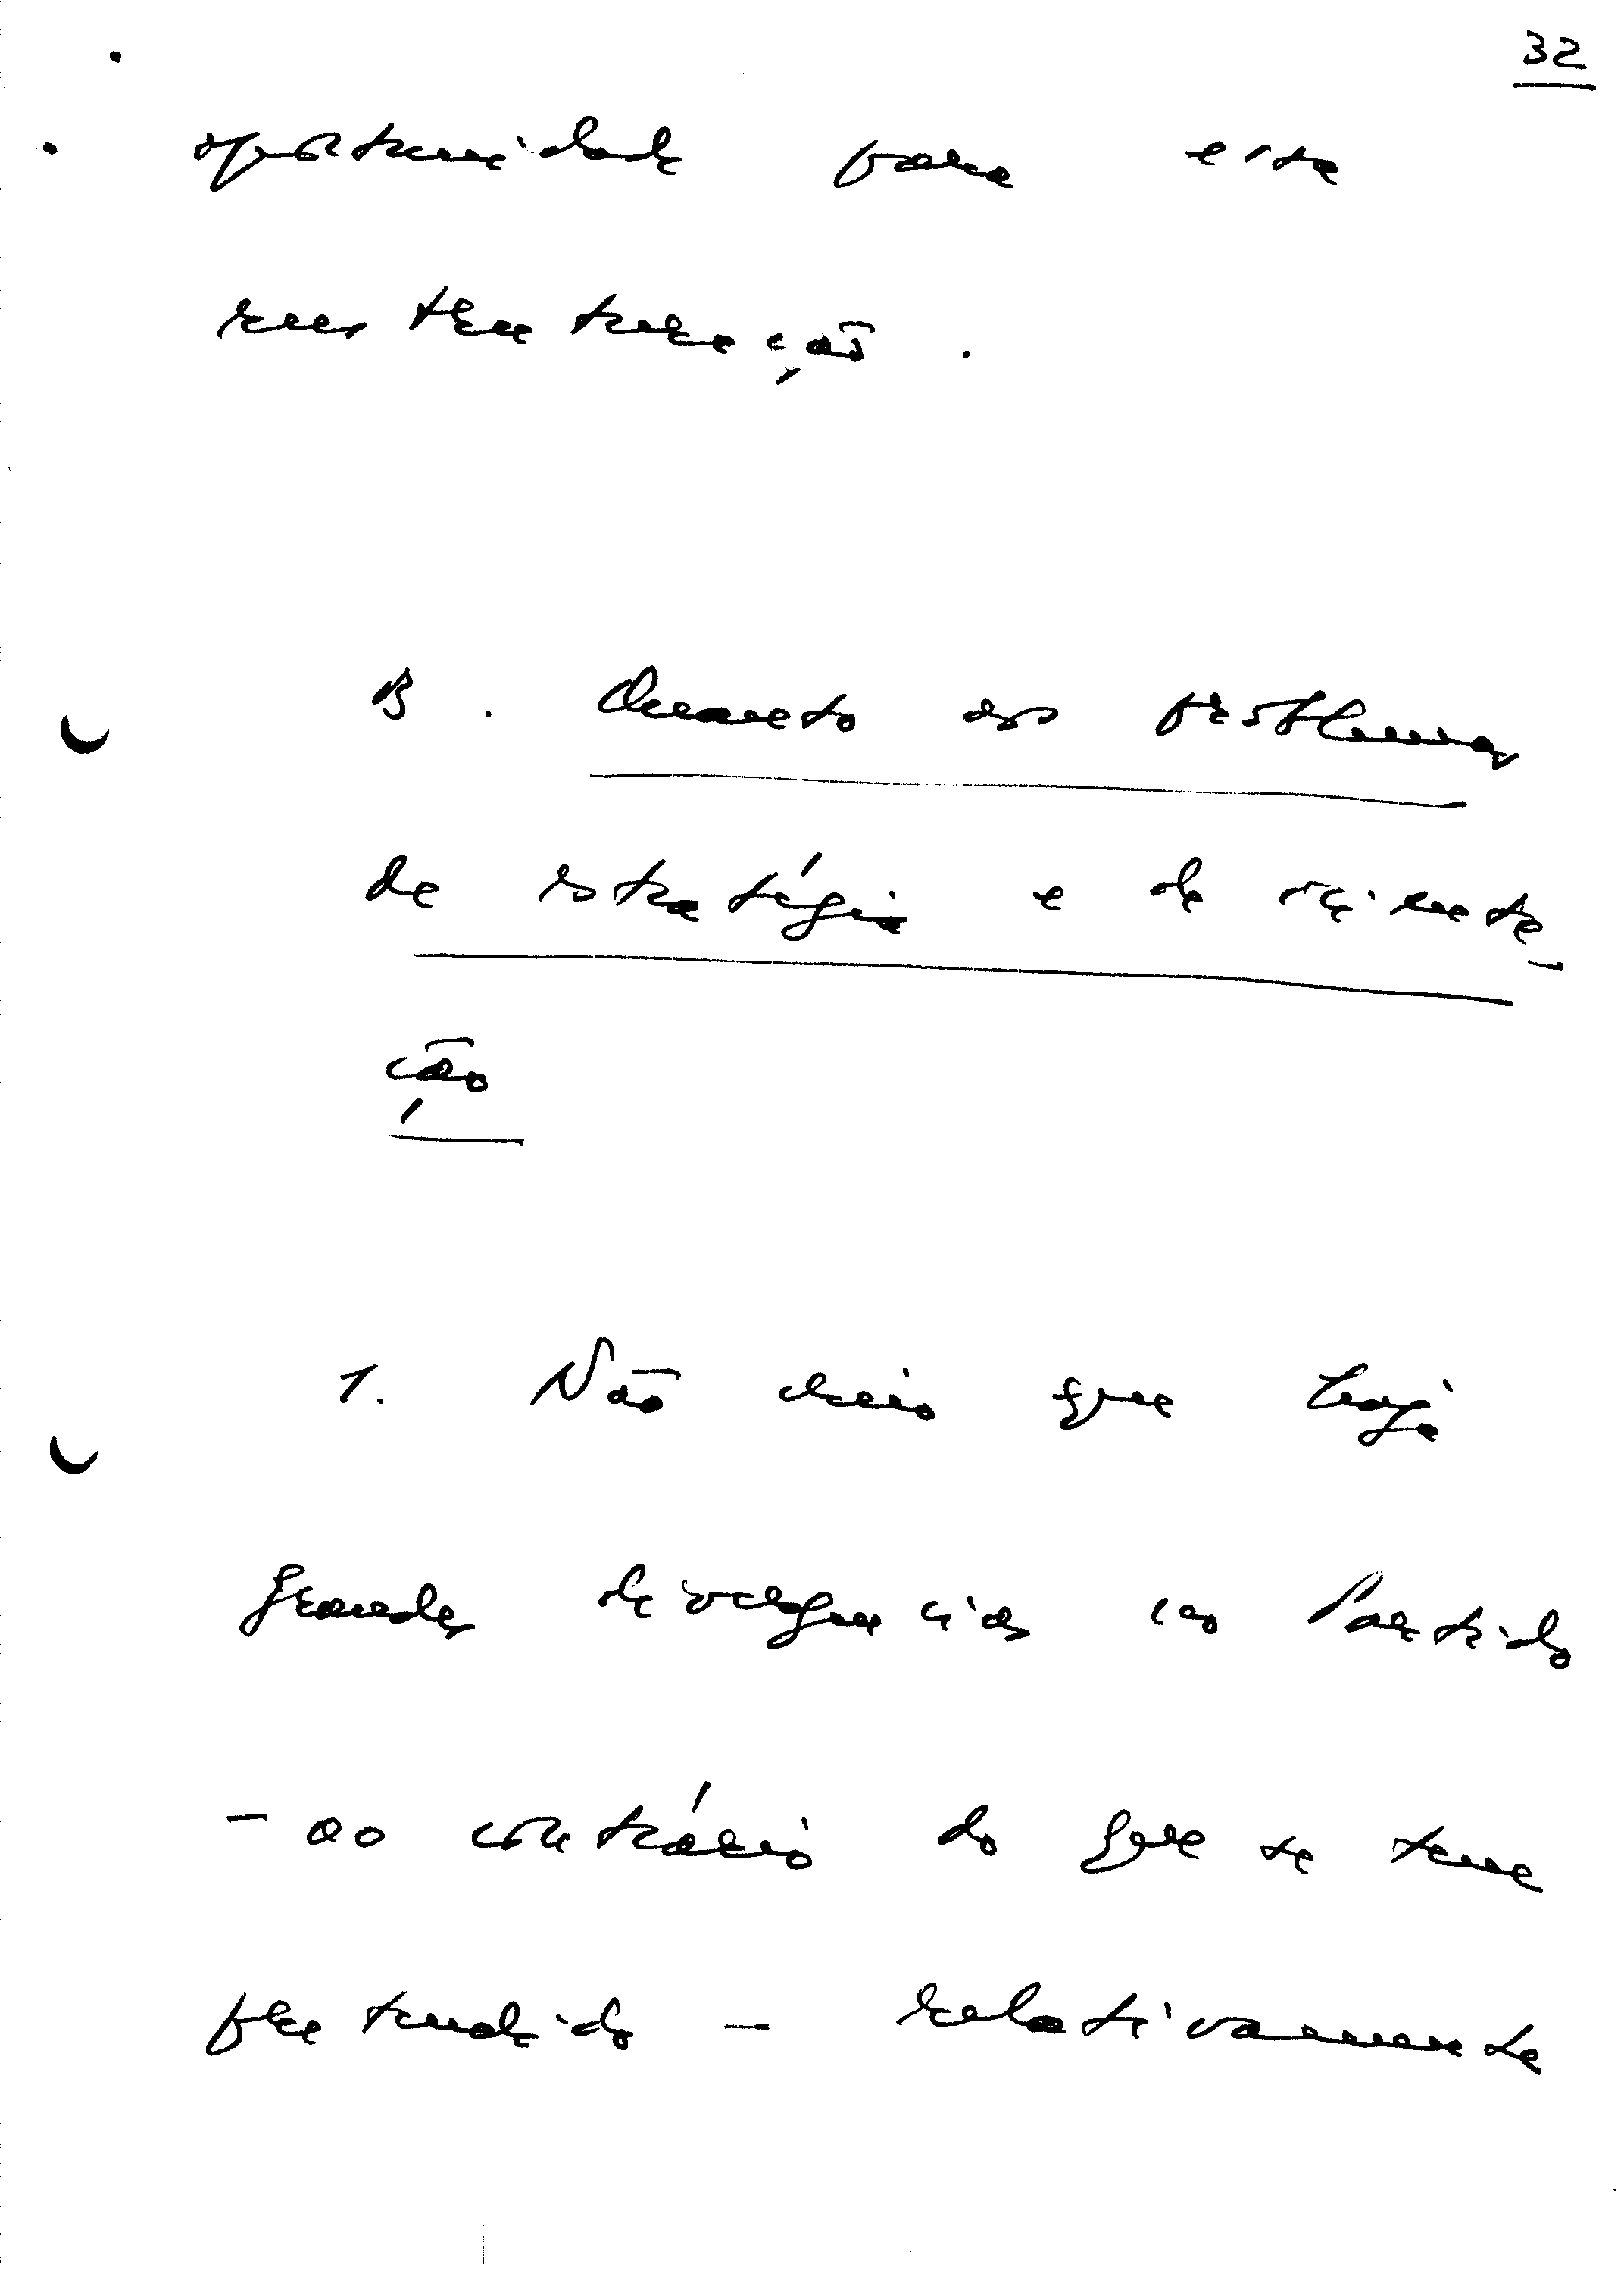 32
oportunidade para esta
reestruturação.
B. Quanto aos problemas
de estratégia e de orienta-
ção
1. Não creio que haja
grandes divergências no Partido
- ao contrário do que se tem
pretendido - relativamente